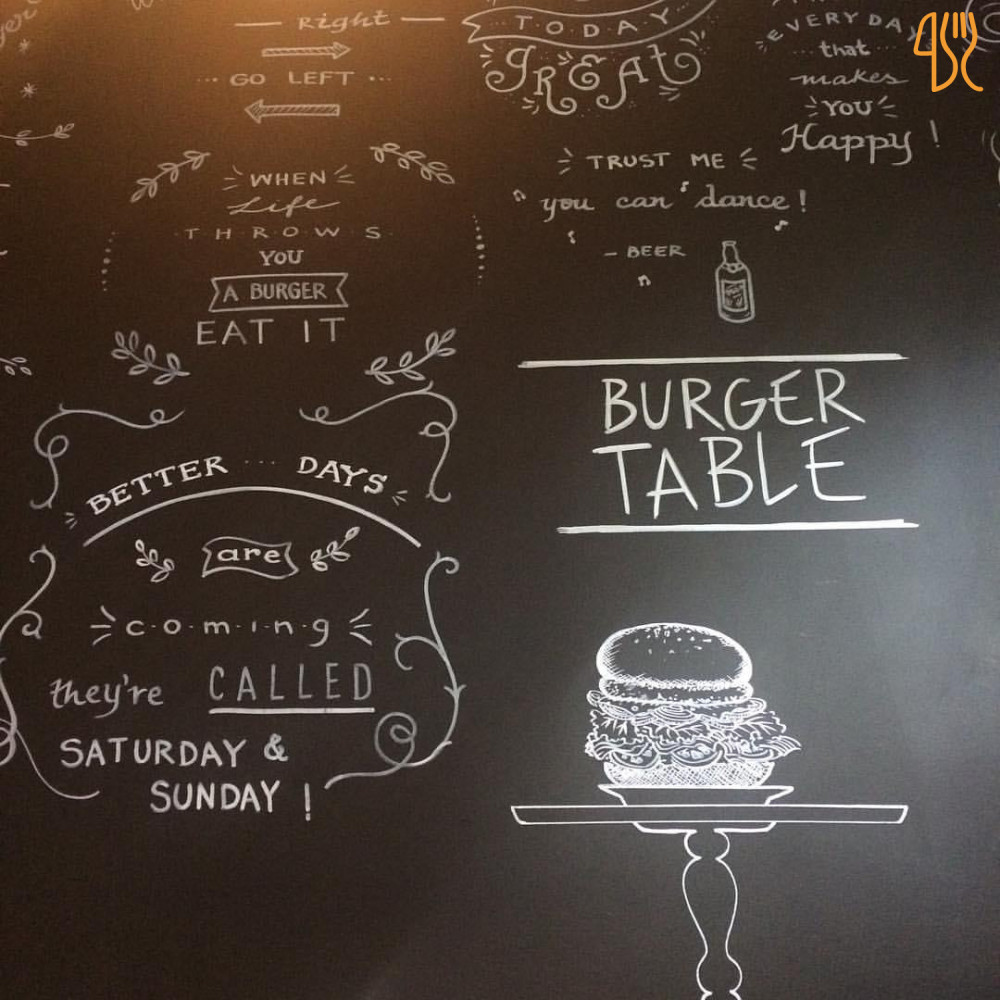 Right
GO LEFT
TODAY
GREAT
EVERYDAY
that
makes
YOU
Happy !
WHEN
Life
THROWS
YOU
A BURGER
EAT IT
TRUST ME
you can dance!
- BEER
BURGER
TABLE
BETTER ... DAYS
are
coming
they're CALLED
SATURDAY &
SUNDAY !